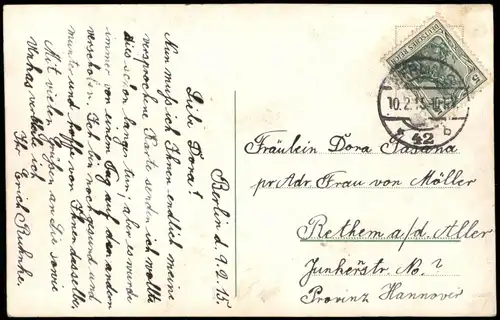 Berlin d. 9.2.15.
Liebe Dora!
Nun muß ich Ihnen endlich meine
versprochene Karte senden ich wollte
dies schon lange tun; aber es wurde
immer von einem Tag auf den andern
verschoben. Ich bin noch gesund und
munter und hoffe von Ihnen dasselbe.
Mit vielen Grüßen an Sie sowie
verbleibe ich
Ihr Erich
DEUTSCHES REICH
5
BERLIN
10.2.15
* 42 b
Fräulein Dora
pr Adr. Frau von Möller
Rethem a/d. Aller
Junkerstr. No. ?
Provinz Hannover